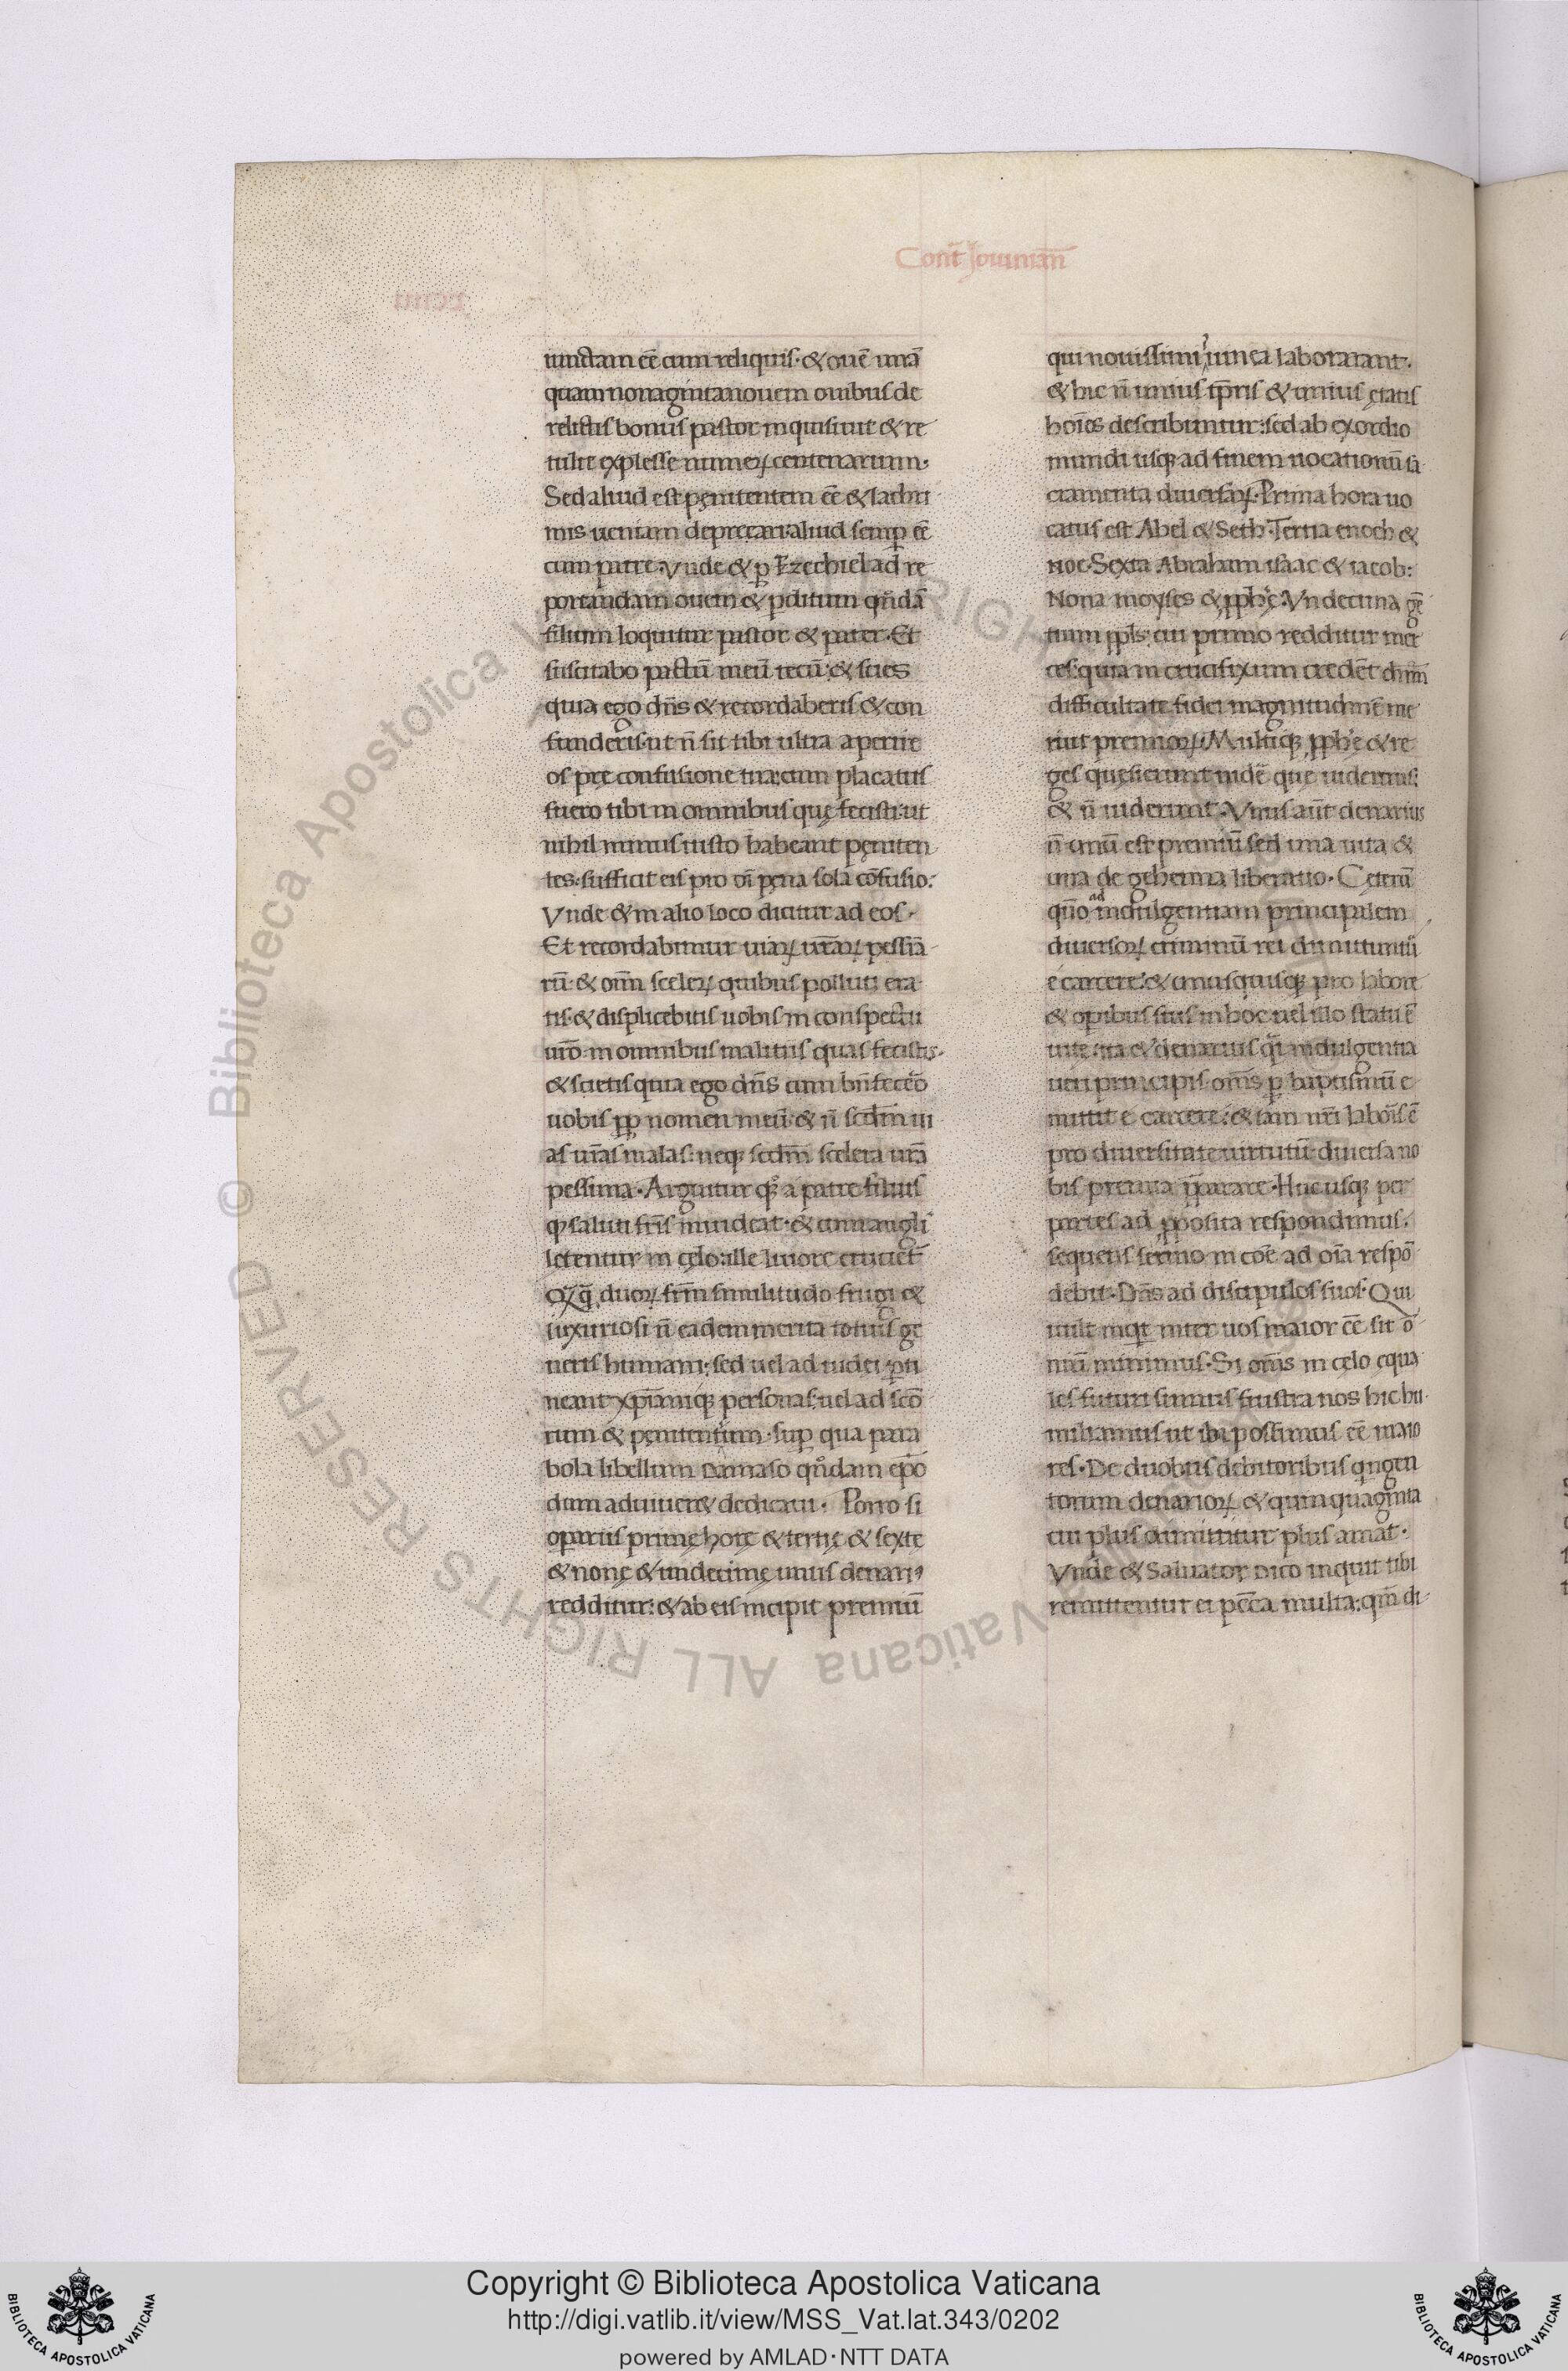 Cont̄ Jouinian̄
iunctam eē cum reliquis· & ouē unā
quam nonaginta nouem ouibus de
relictis bonus pastor inquisiuit & re
tulit explesse numeꝝ centenarium·
Sed aliud est pęnitentem eē & lachri
mis ueniam deprecari· aliud semꝑ eē
cum patre· Vnde & ꝑ Ezechiel ad re
portandam ouem & ꝑditum qn̄dā
filium loquitur pastor & pater· Et
suscitabo pactū meū tecū· & scies
quia ego dn̄s & recordaberis & con
funderis· ut n̄ sit tibi ultra aperire
os prę confusione tua: cum placatus
fuero tibi in omnibus quę fecisti· ut
nihil minus iusto habeant pęniten
tes· sufficit eis pro oī pęna sola cōfusio:
Vnde & in alio loco dicitur ad eos·
Et recordabimur uiaꝝ ur̄aꝝ pessīa
rū· & om̄ sceleꝝ quibus polluti era
tis· & displicebitis uobis in conspectu
ur̄o· in omnibus malitiis quas fecistis·
& scietis quia ego dn̄s cum bn̄fecero
uobis ꝓp nomen meū· & n̄ scdm̄ ui
as ur̄as malas· neqꝫ scdm̄ scelera ur̄a
pessima· Arguitur qꝫ a patre filius
ꝙ saluti fr̄is inuideat· & cum angli
letentur in cęlo: ille liuore crucietˉ
duoꝝ fr̄m similitudo frugi &
luxuriosi n̄ eadem merita totius ge
neris humani: sed uel ad iudei ꝑti
neant xp̄ianiqꝫ personas· uel ad scō
rum & pęnitentium· suꝑ qua para
bola libellum Damaso qn̄dam ep̄o
dum aduiuer& dedicaui· Porro si
operariis primę horę & tertię & sextę
& nonę & undecimę unus denariꝰ
redditur: & ab eis incipit premiū
qui nouissimi uinea laborarant·
& hic n̄ unius tp̄ris & unius ętatis
hoīes describuntur: sed ab exordio
mundi usqꝫ ad finem uocationū sa
cramenta diuersaꝝ· Prima hora uo
catus est Abel & Seth· Tertia enoch &
noe· Sexta Abraham isaac & iacob:
Nona moyses & ꝓph̄ę· Vndecima gē
tium ppl̄s· cui primo redditur mer
ces· quia in crucifixum credēt dnm̄
difficultate fidei magnitudinē me
ruit premioꝝ· Multiqꝫ ꝓph̄e & re
ges quęsierunt uidē quę uidemus:
& n̄ uiderunt· Vnus aūt denarius
n̄ unū est premiū sed una uita &
una de gehenna liberatio· Ceterū
quō ad indulgentiam principalem
diuersoꝝ criminū rei dimittuntur
e carcere: & unusquisqꝫ pro labore
& operibus suis in hoc uel illo statu ē
uitę: ita & denarius indulgentia
ueri principis· omīs ꝑ baptismū e
mittit e carcere: & iam nr̄i laboris ē
pro diuersitate uirtutū diuersa no
bis premia pparare· Huc usqꝫ per
partes ad ꝓposita respondimus·
sequens sermo in cōe ad oīa respō
debit· Dn̄s ad discipulos suos· Qui
uult inqͥt inter uos maior eē sit ō
niū minimus· Si om̄s in cęlo equa
les futuri sumus frustra nos hic hu
miliamus ut ibi possimus eē maio
res· De duobus debitoribus qͥngen
torum denarioꝝ & quinquaginta
cui plus dimittitur plus amat·
Vnde & Saluator Dico inquit tibi
remittentur ei pccā multa: qm̄ di
Copyright © Biblioteca Apostolica Vaticana
http://digi.vatlib.it/view/MSS_Vat.lat.343/0202
powered by AMLAD·NTT DATA
© Biblioteca Apostolica Vaticana ALL RIGHTS RESERVED
BIBLIOTECA APOSTOLICA VATICANA
BIBLIOTECA APOSTOLICA VATICANA